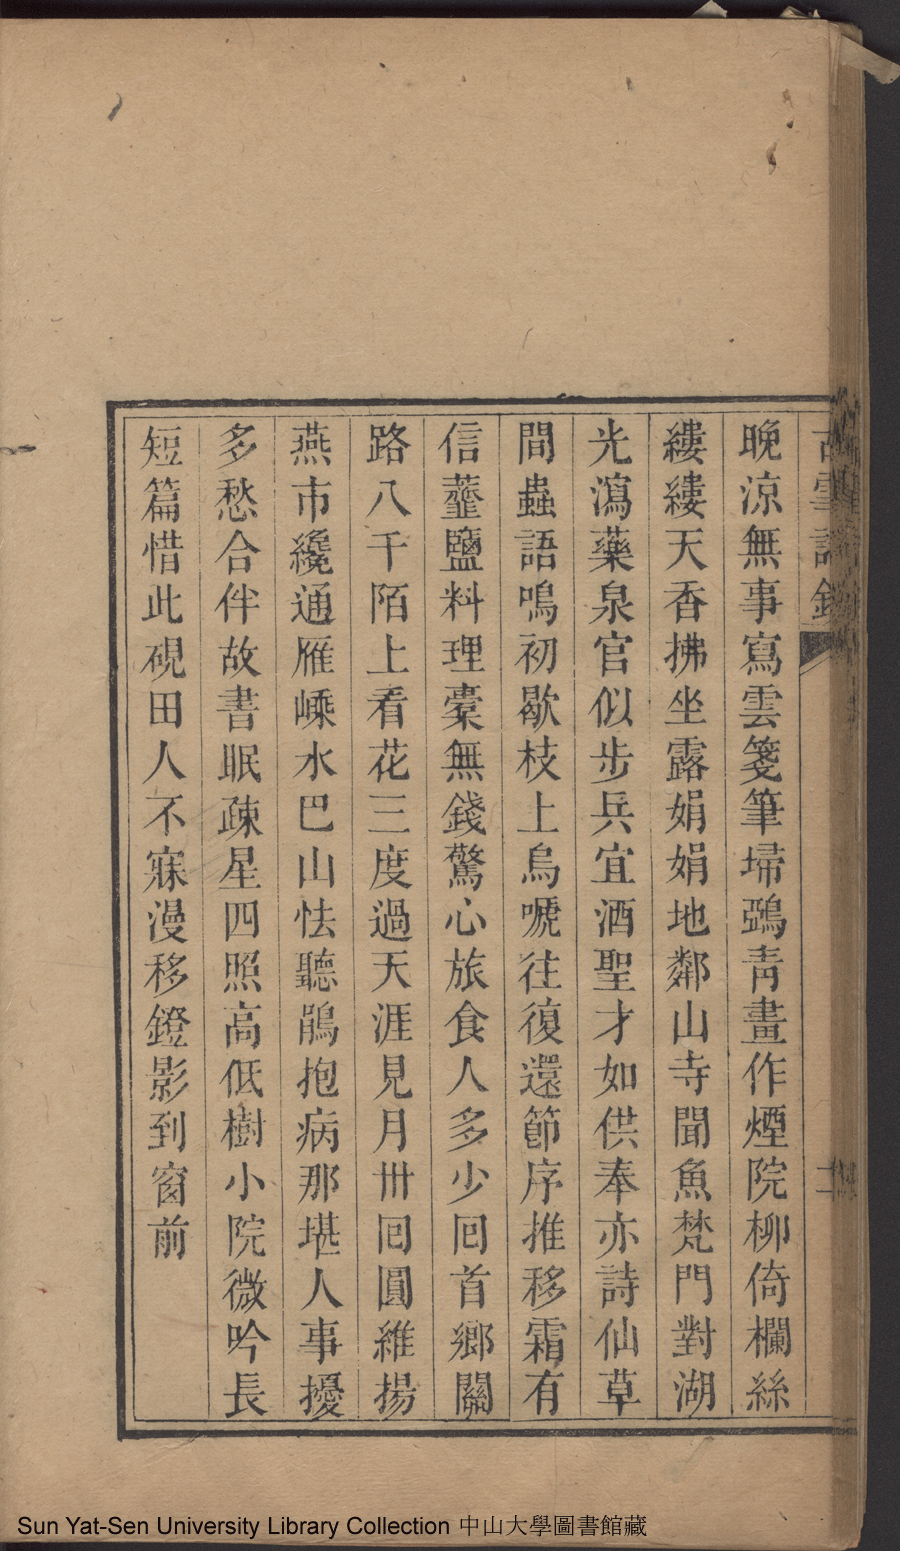 晚涼無事寫雲箋筆埽鵶青畫作煙院柳倚欄絲
縷縷天香拂坐露娟娟地鄰山寺聞魚梵門對湖
光瀉藥泉官似步兵宜酒聖才如供奉亦詩仙草
間蟲語鳴初歇枝上烏嗁往復還節序推移霜有
信虀鹽料理橐無錢驚心旅食人多少回首鄉關
路八千陌上看花三度過天涯見月卌回圓維揚
燕市纔通雁㟙水巴山怯聽鵑抱病那堪人事擾
多愁合伴故書眠疎星四照高低樹小院微吟長
短篇惜此硯田人不寐漫移鐙影到窗前
Sun Yat-Sen University Library Collection 中山大學圖書館藏